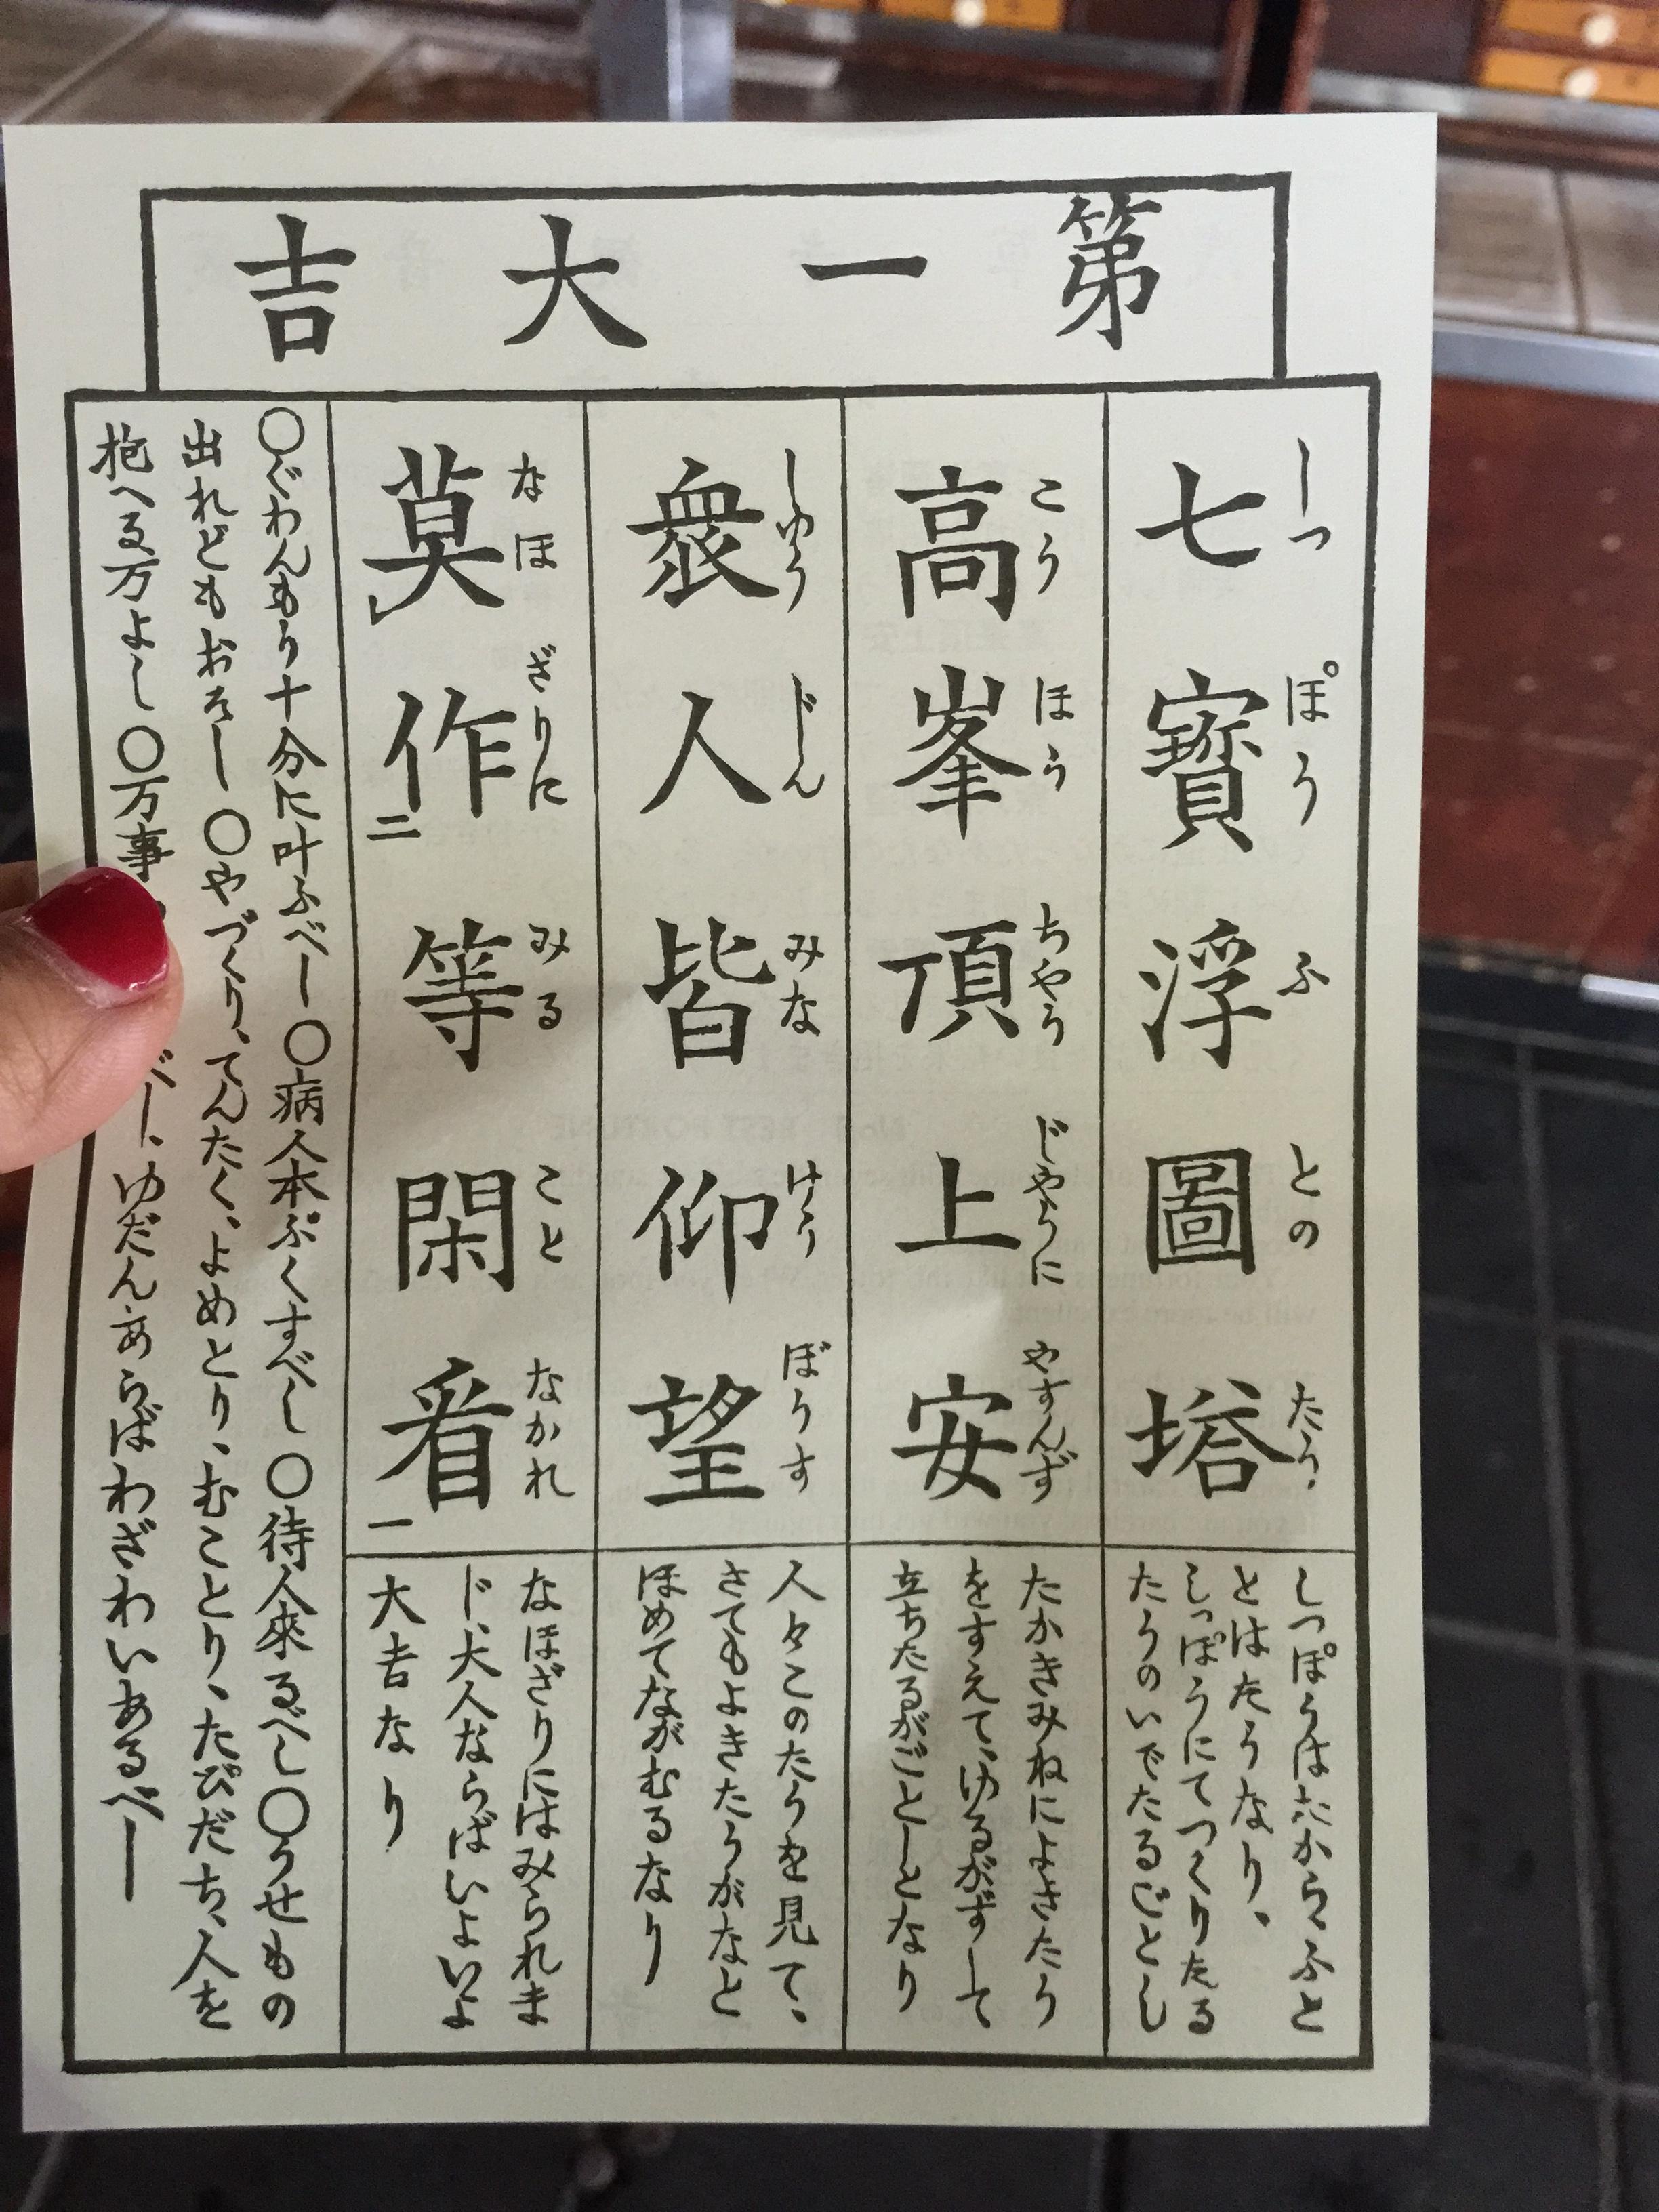 第一大吉
七寶浮圖塔
しつぽうふとのたう
しっぽうはたから、ふと
とはたうなり、
しっぽうにてつくりたる
たうのいでたるごとし
高峯頂上安
こうほうちやうじやうにやすんず
たかきみねによきたう
をすえて、ゆるがずして
立ちたるがごとしとなり
衆人皆仰望
しゆうじんみなけうぼうす
人々このたうを見て、
さてもよきたうがなと
ほめてながむるなり
莫レ作二等閑看一
なほざりにみることなかれ
なほざりにはみられま
じ、大人ならばいよいよ
大吉なり
〇ぐわんもう十分に叶ふべし〇病人本ぷくすべし〇待人來るべし〇うせもの
出れどもおそし〇やづくり、てんたく、よめとり、むことり、たびだち、人を
抱へる万よし〇万事 べし、ゆだんあらばわざわいあるべし